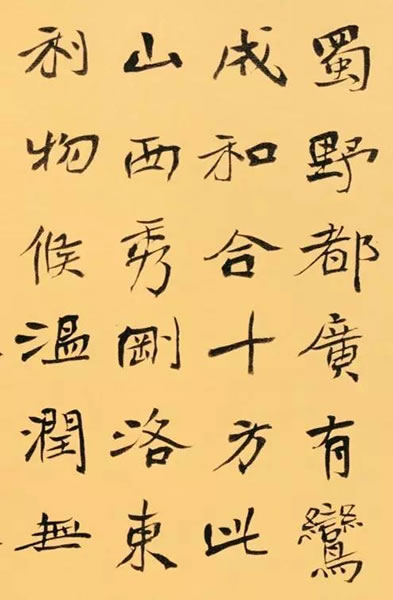 蜀野都廣有鸞
成和合十方此
山西秀剛洛東
利物候溫潤無